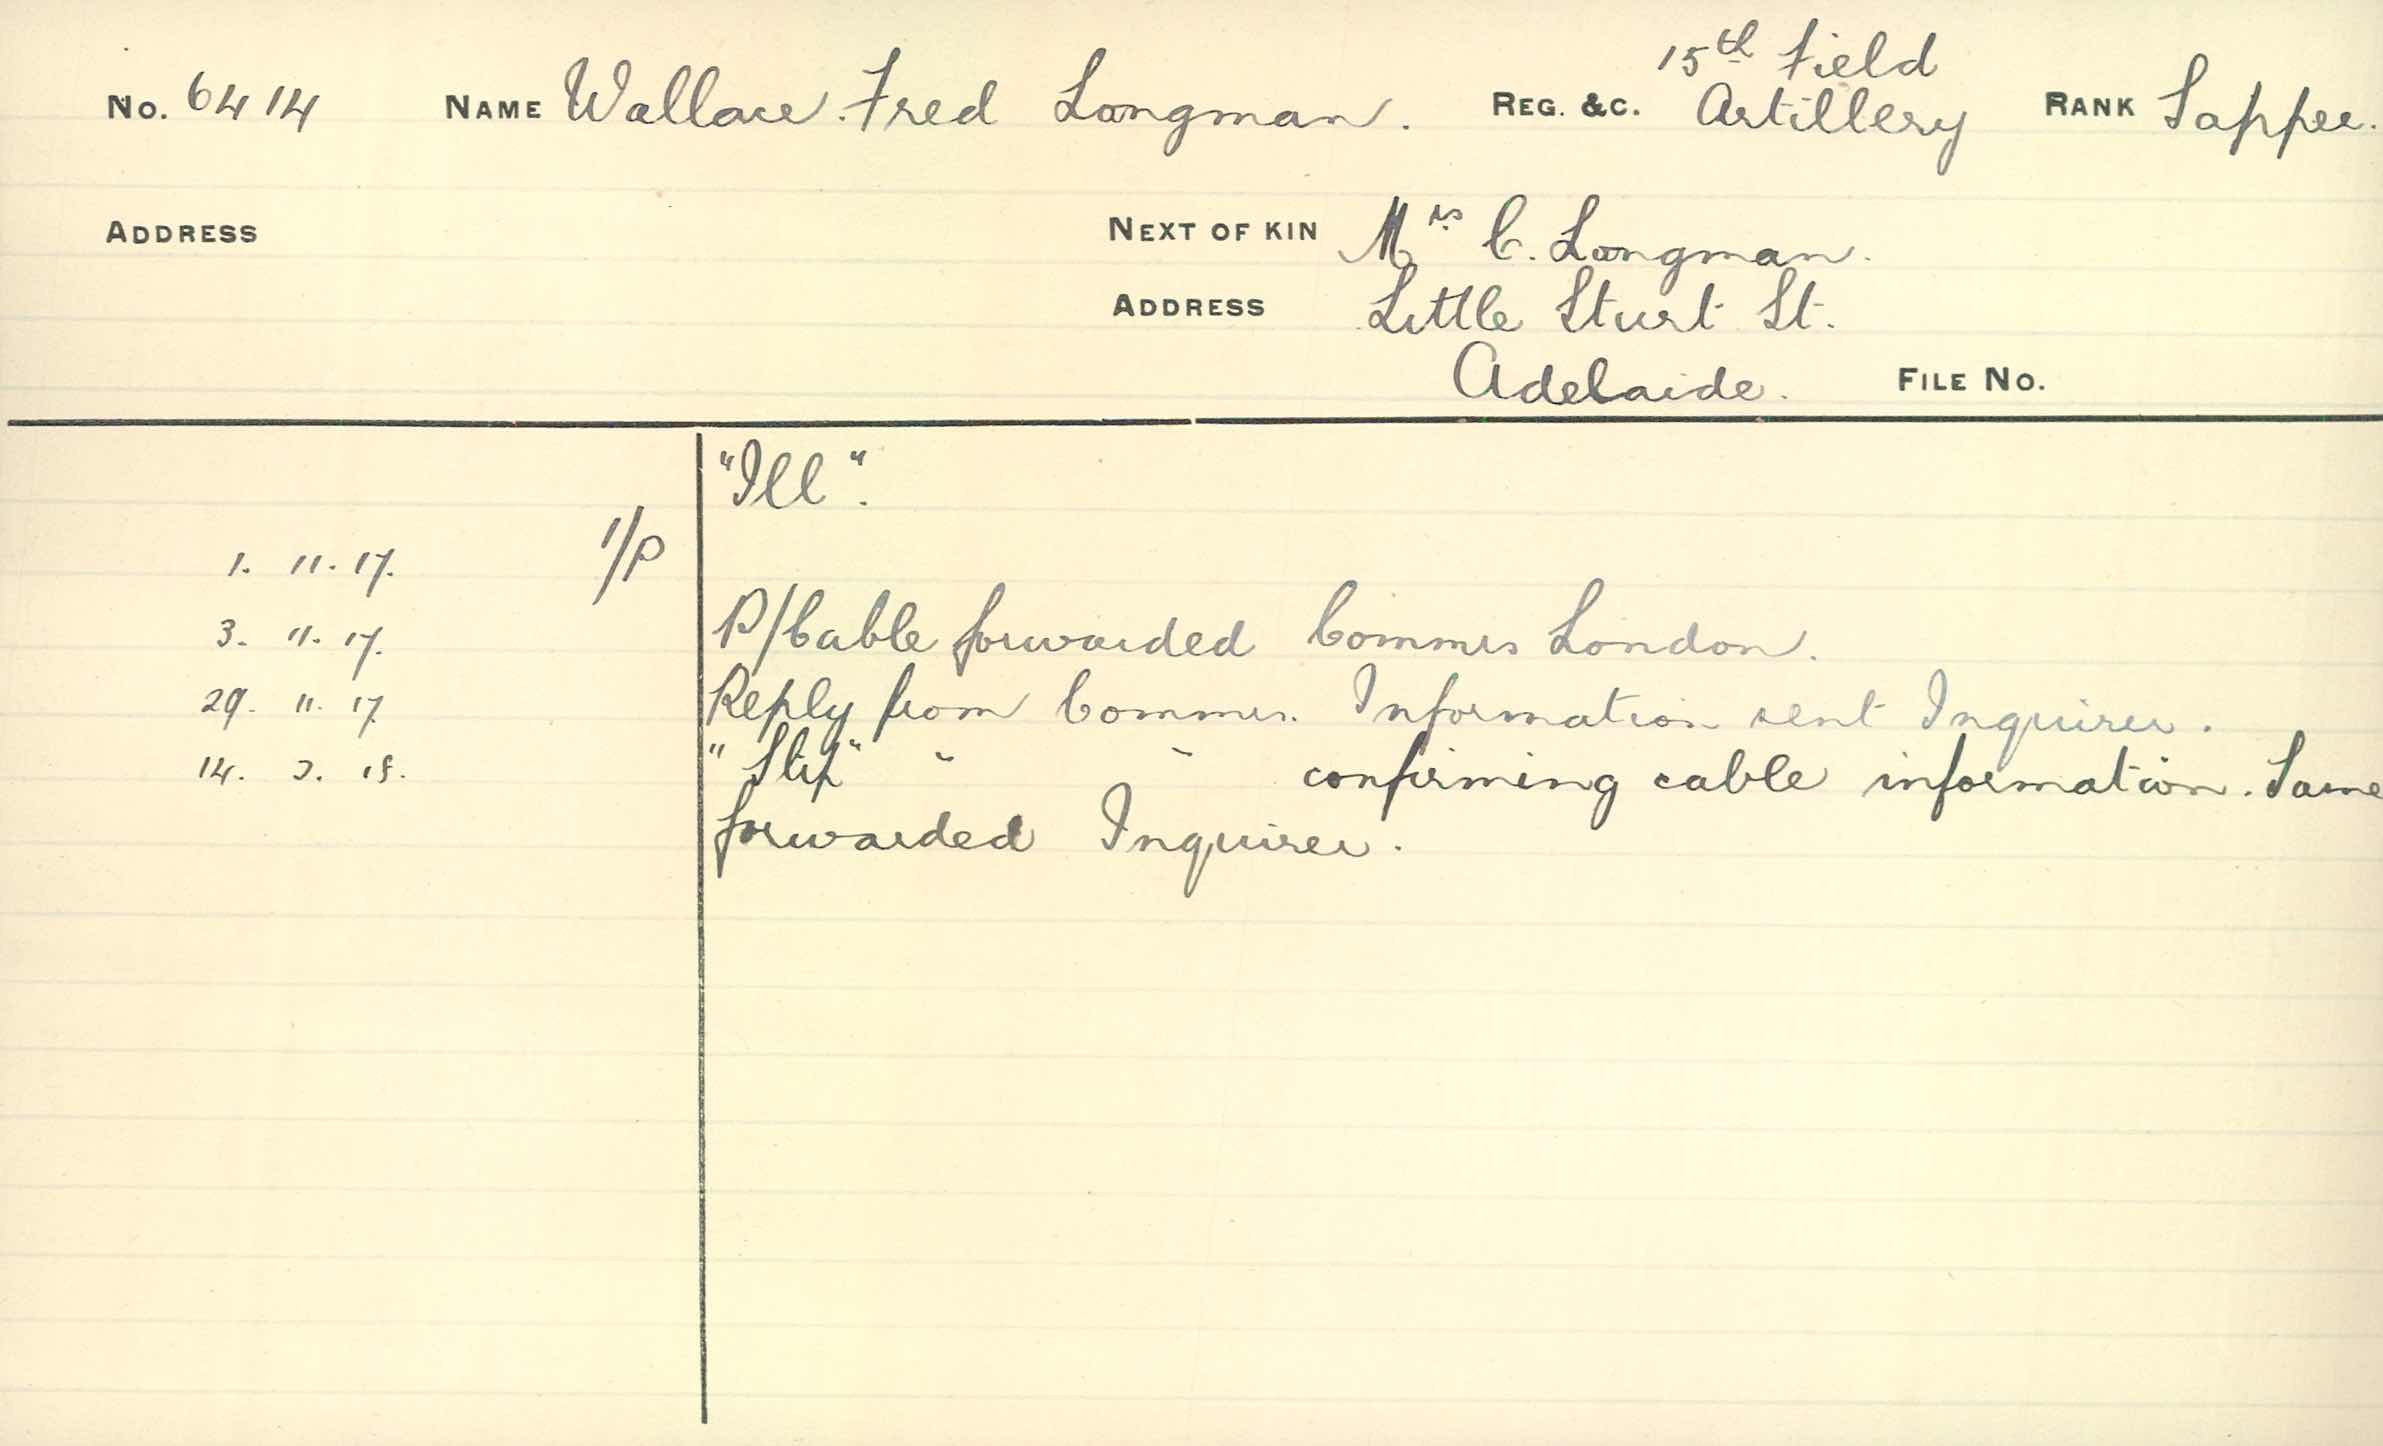 No. 6414 NAME Wallace. Fred Longman. REG. &C. 15th Field Artillery RANK Sapper.
ADDRESS NEXT OF KIN Mrs C. Longman.
ADDRESS Little Sturt St.
Adelaide. FILE No.
"Ill".
1. 11. 17. 1/P
3. 11. 17. P/Cable forwarded Commrs London.
29. 11. 17 Reply from Commrs. Information sent Inquirer.
14. 18. " Slip" " " confirming cable information. Same
forwarded Inquirer.